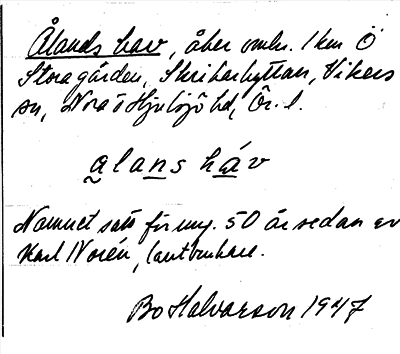 Ålands hav, åker omkr. 1 km Ö
Storagården, Skrikarhyttan, Vikers
sn, Nora o Hjulsjö hd, Ör. l.
alans háv
Namnet satt för ung. 50 år sedan av
Karl Norén, lantbrukare.
Bo Halvarson 1947